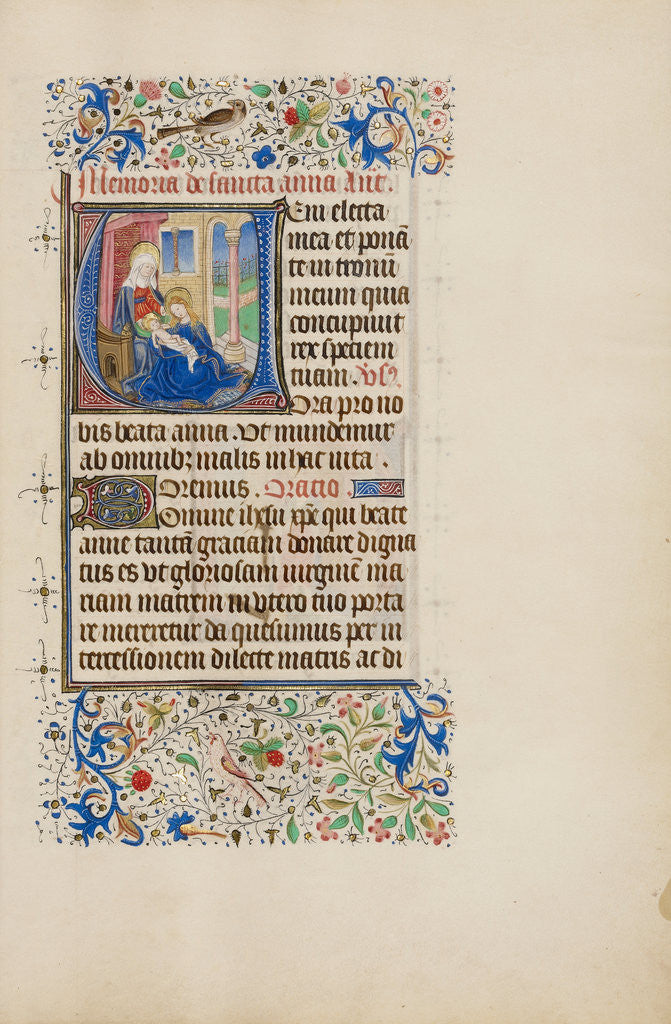 Memoria de sancta anna Ant̄.
Veni electa
mea et ponā
te in tronū
meum quia
concupiuit
rex speciem
tuam. Vs̄.
Ora pro no
bis beata anna. Vt mundemur
ab omnibꝫ malis in hac uita.
Oremus. Oratio.
Domine ihesu xp̄e qui beate
anne tantā graciam donare digna
tus es vt gloriosam uirginē ma
riam matrem in vtero tuo porta
re mereretur da quesumus per in
tercessionem dilecte matris ac di